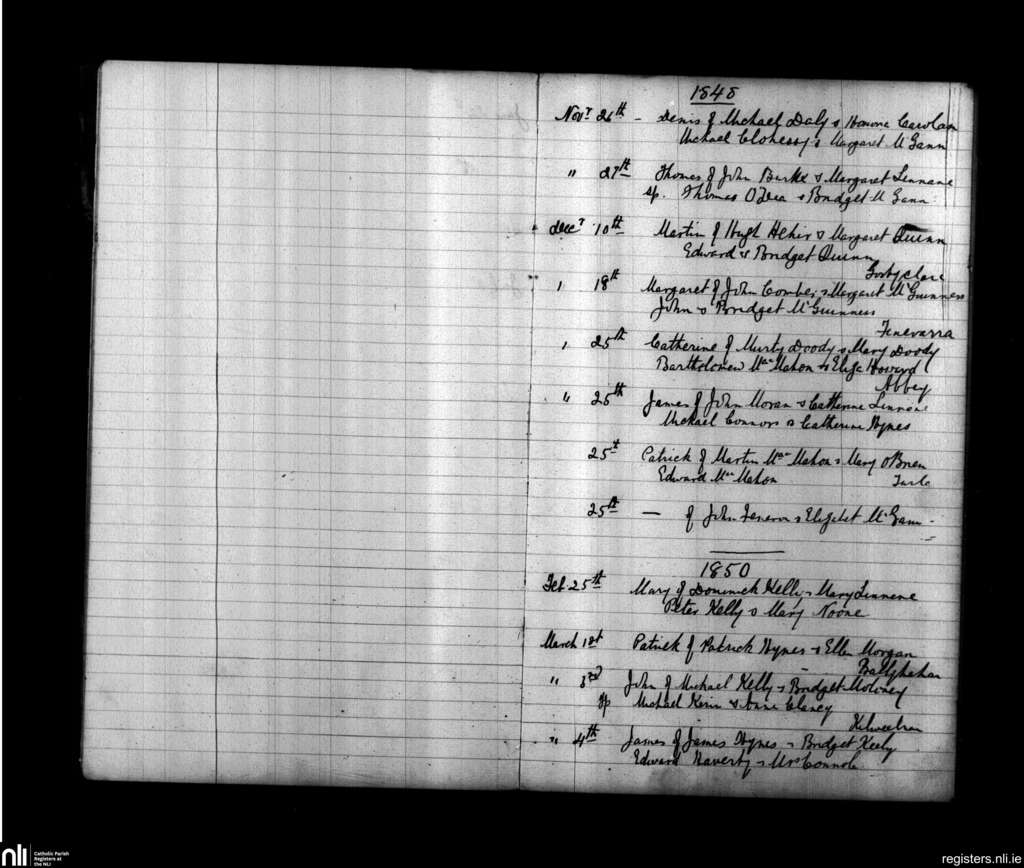 1848
Novr 26th – Denis of Michael Daly & Honora Carolan
Michael Clohessy & Margaret McGann
" 27th Thomas of John Burke & Margaret Linnane
Sp. Thomas O'Dea & Bridget McGann
Decr 10th Martin of Hugh Hehir & Margaret Quinn
Edward & Bridget Quinn
Gortyclare
" 18th Margaret of John Comber & Margaret McGuinness
John & Bridget McGuinness
Finevarra
" 25th Catherine of Murty Doody & Mary Doody
Bartholomew MacMahon & Eliza Howard
Abbey
" 25th James of John Moran & Catherine Linnane
Michael Connors & Catherine Hynes
25th Patrick of Martin MacMahon & Mary O'Brien
Edward MacMahon
25th — of John & Elizabet McGann
1850
Feb 25th Mary of Dominick Kelly & Mary Linnane
Peter Kelly & Mary Noone
March 1st Patrick of Patrick Hynes & Ellen Morgan
Ballyhehan
" 3rd John of Michael Kelly & Bridget Moloney
Sp Michael Kerin & Anne Clancy
" 4th James of James Hynes & Bridget Keely
Edward Haverty & Mrs Connole
nli
Catholic Parish
Registers at
the NLI
registers.nli.ie